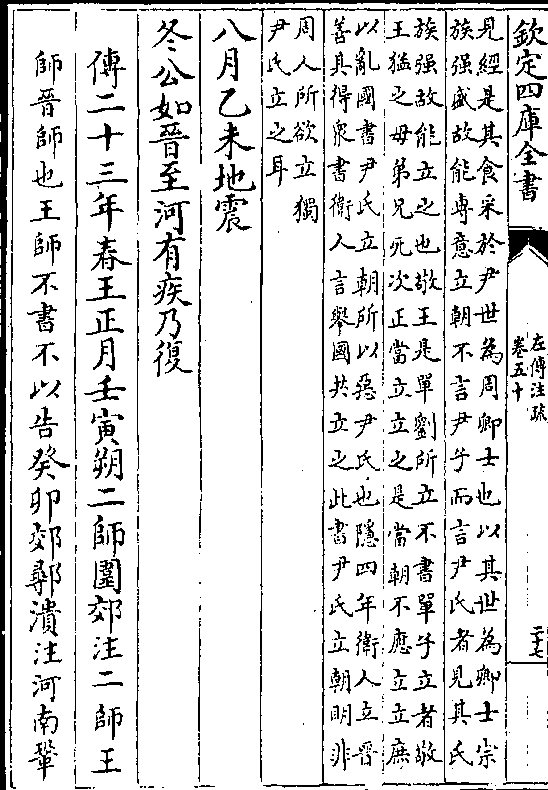 欽定四庫全書
左傳注疏
卷五十
二十七
見經是其食采於尹世為周卿士也以其世為卿士宗
族强盛故能專意立朝不言尹子而言尹氏者見其氏
族强故能立之也敬王是單劉所立不書單子立者敬
王猛之母弟兄死次正當立立之是當朝不應立立庶
以亂國書尹氏立朝所以惡尹氏也隱四年衛人立晉
善其得衆書衛人言舉國共立之此書尹氏立朝明非
周人所欲立獨
尹氏立之耳
八月乙未地震
冬公如晉至河有疾乃復
傳二十三年春王正月壬寅朔二師圍郊注二師王
師晉師也王師不書不以告癸卯郊鄩潰注河南鞏